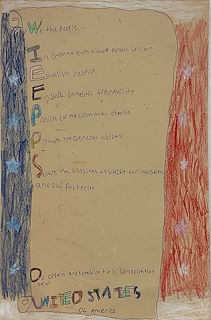 We the people
In Order to form a more perfect union
Establish Justice
Insure domestic tranquility
Provide for the common defense
Promote the General Welfare
Secure the blessings of liberty for ourselves
and our Posterity
Do ordain and establish this Constitution
UNITED STATES
Of America